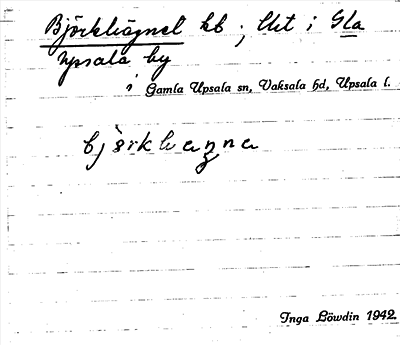 Björkhägnet kb; Ut i Gla
Upsala by
i Gamla Upsala sn, Vaksala hd, Upsala l.
Inga Löwdin 1942.